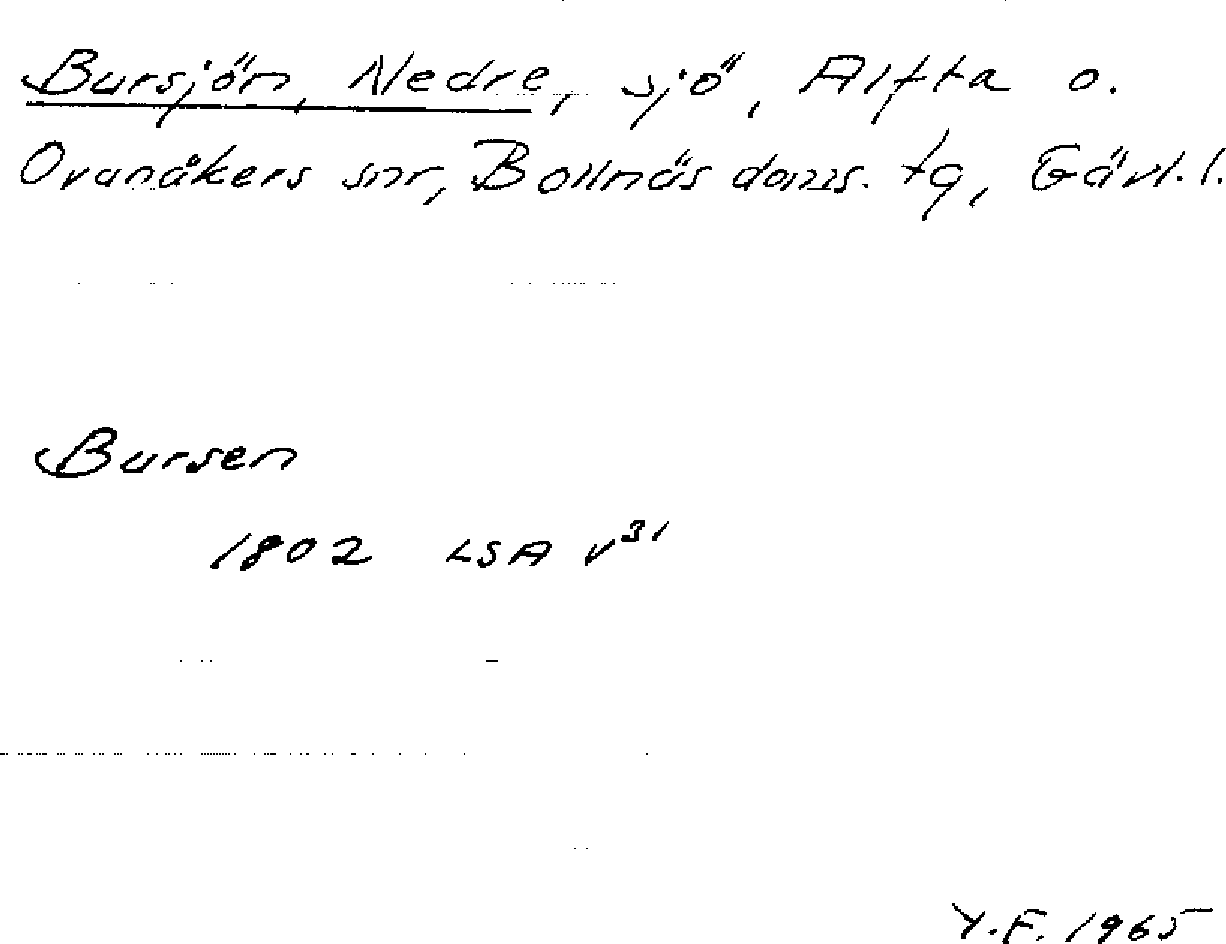 Bursjön, Nedre, sjö, Alfta o.
Ovanåkers snr, Bollnäs doms. tg, Gävl. l.
Bursen
1802 LSA v³¹
Y.F. 1965